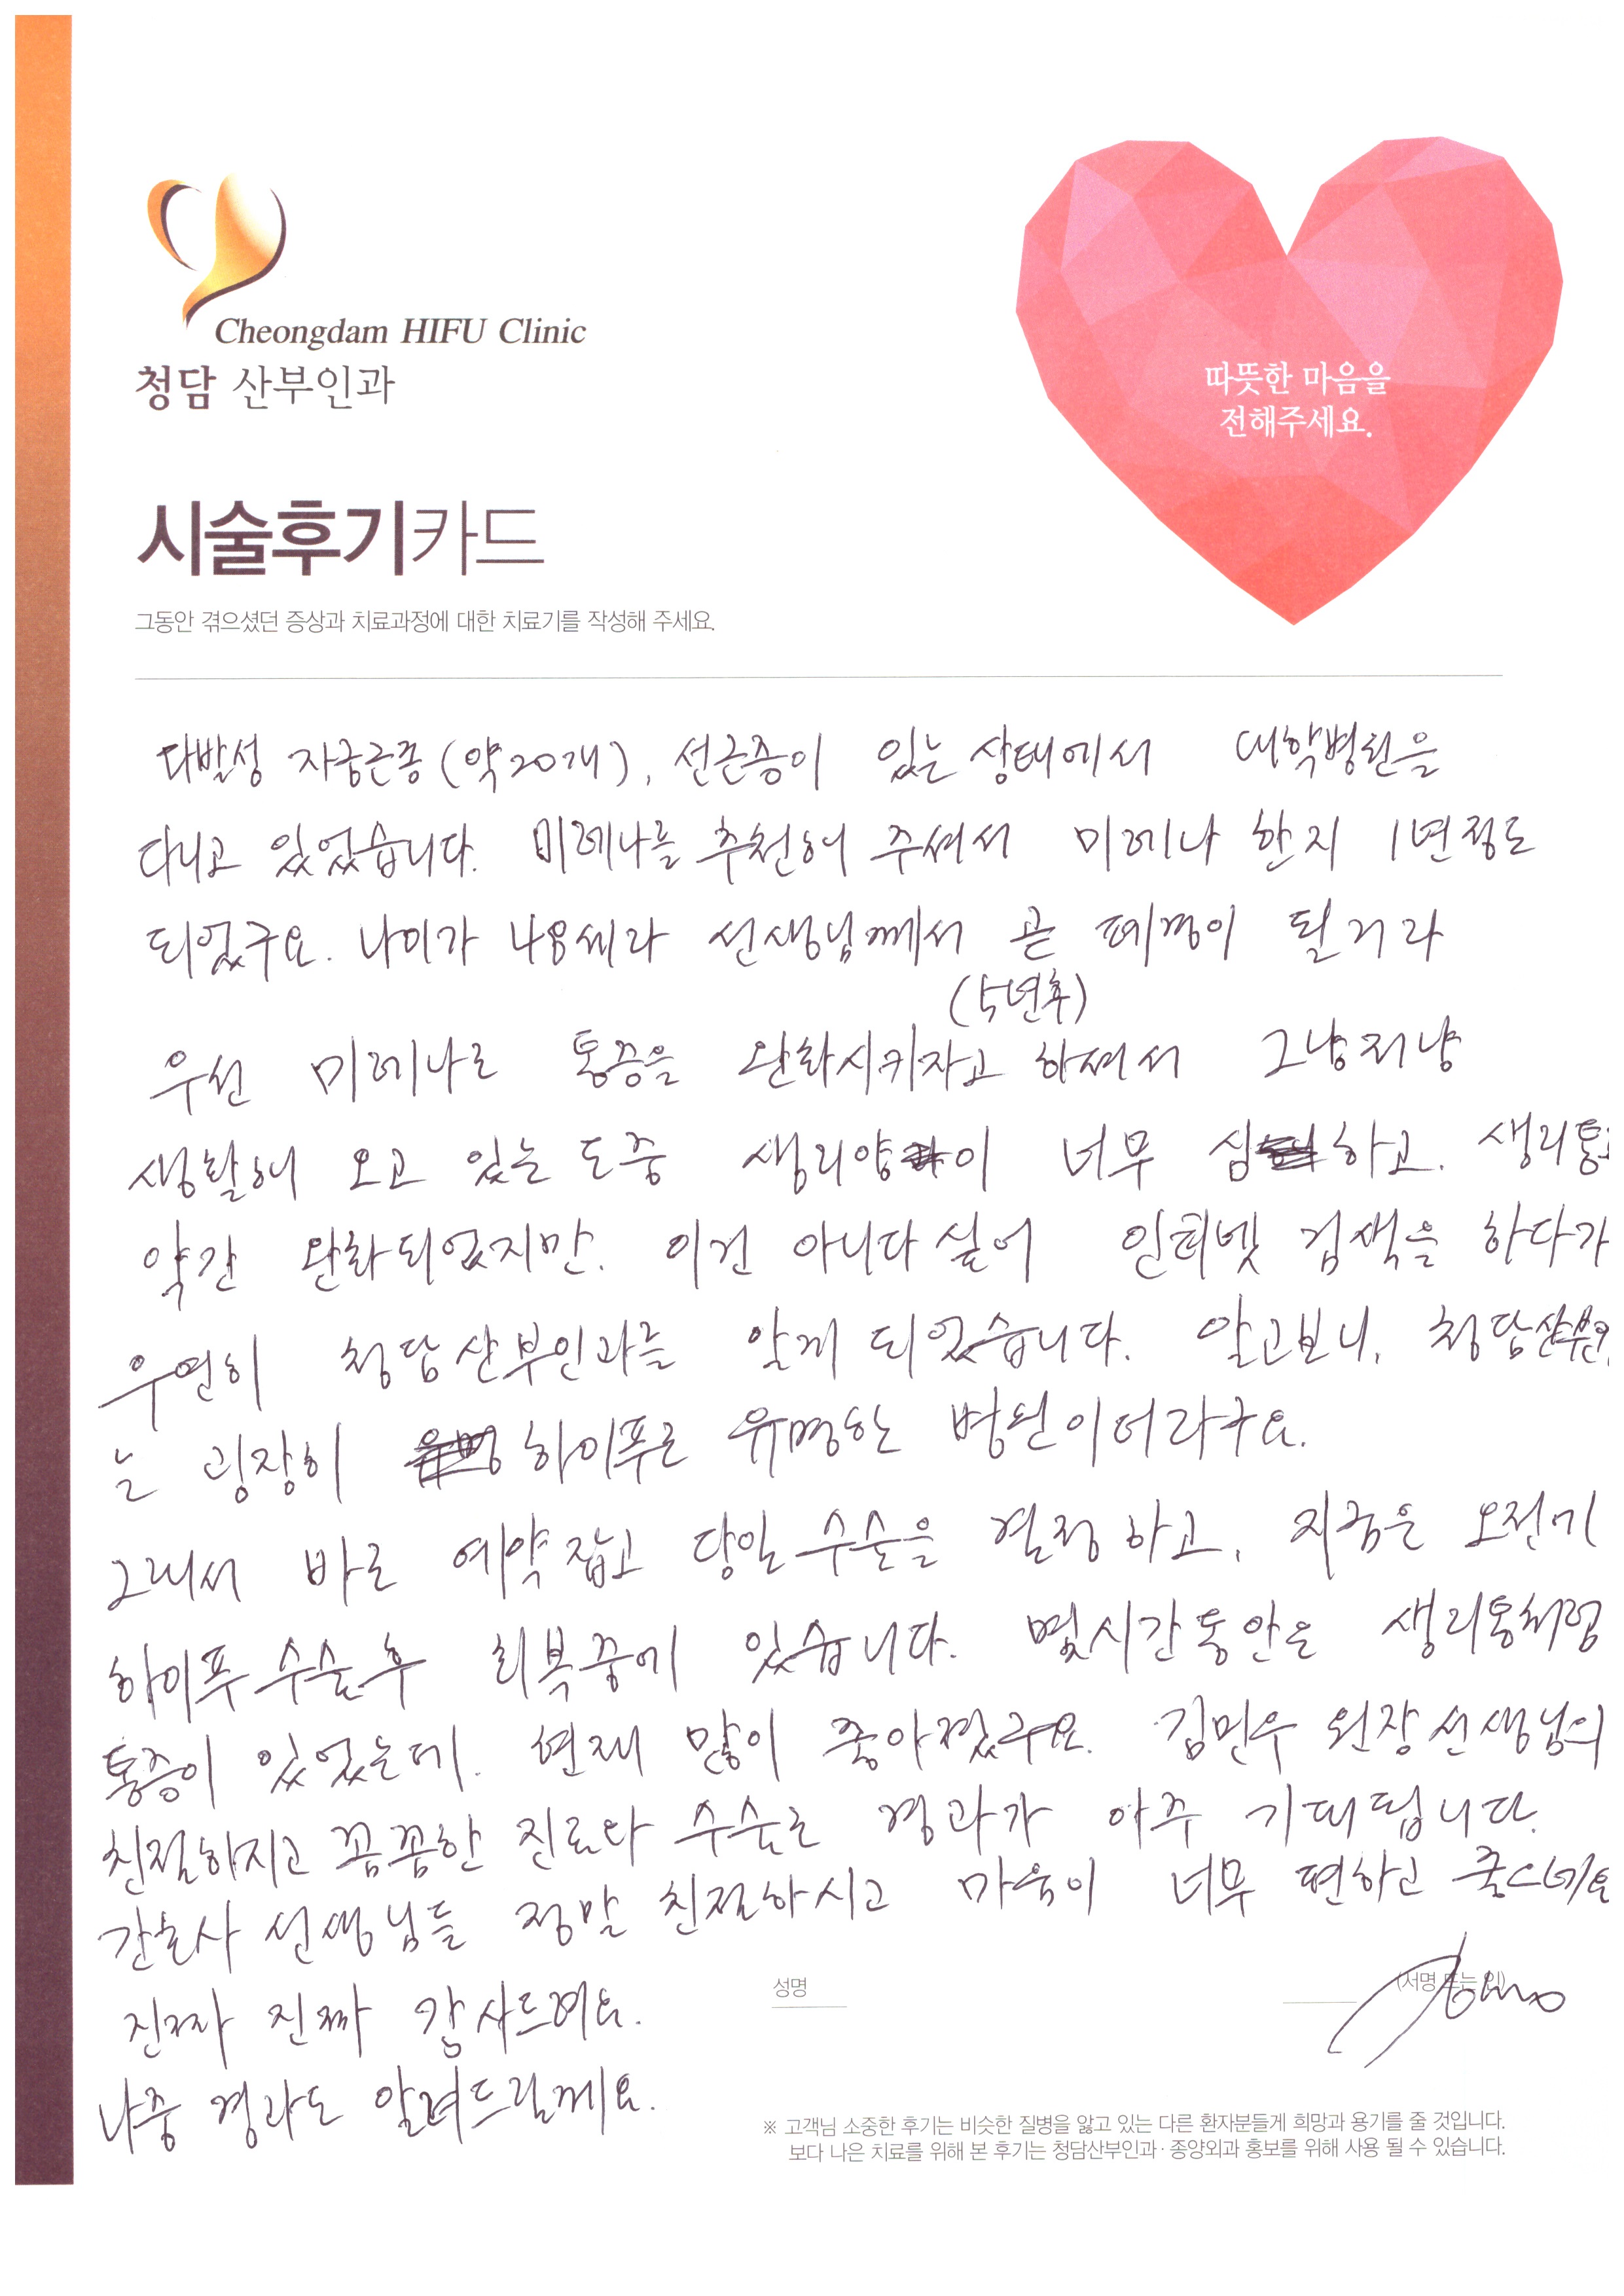 Cheongdam HIFU Clinic
청담 산부인과
따뜻한 마음을
전해주세요.
시술후기카드
그동안 겪으셨던 증상과 치료과정에 대한 치료기를 작성해 주세요.
다발성 자궁근종(약20개), 선근증이 있는 상태에서 대학병원을
다니고 있었습니다. 미레나를 추천해 주셔서 미레나 한지 1년정도
되었구요. 나이가 48세라 선생님께서 곧 폐경이 될거라
(5년후)
우선 미레나로 통증을 완화시키자고 하셔서 그냥저냥
생활해 오고 있는 도중 생리양이 너무 심하고. 생리통
약간 완화되었지만. 이건 아니다 싶어 인터넷 검색을 하다가
우연히 청담산부인과를 알게 되었습니다. 알고보니, 청담산부인
는 굉장히 하이푸로 유명한 병원이더라구요.
그래서 바로 예약잡고 당일 수술을 결정하고, 지금은 오전기
하이푸수술후 회복중에 있습니다. 몇시간동안은 생리통처럼
통증이 있었는데. 현재 많이 좋아졌구요. 김민우 원장선생님의
친절하지고 꼼꼼한 진료와 수술로 경과가 아주 기대됩니다.
간호사 선생님들 정말 친절하시고 마음이 너무 편하고 좋으네요
진짜 진짜 감사드려요.
나중 경과도 알려드릴께요.
성명
(서명 또는 인)
※ 고객님 소중한 후기는 비슷한 질병을 앓고 있는 다른 환자분들게 희망과 용기를 줄 것입니다.
보다 나은 치료를 위해 본 후기는 청담산부인과·종양외과 홍보를 위해 사용 될 수 있습니다.